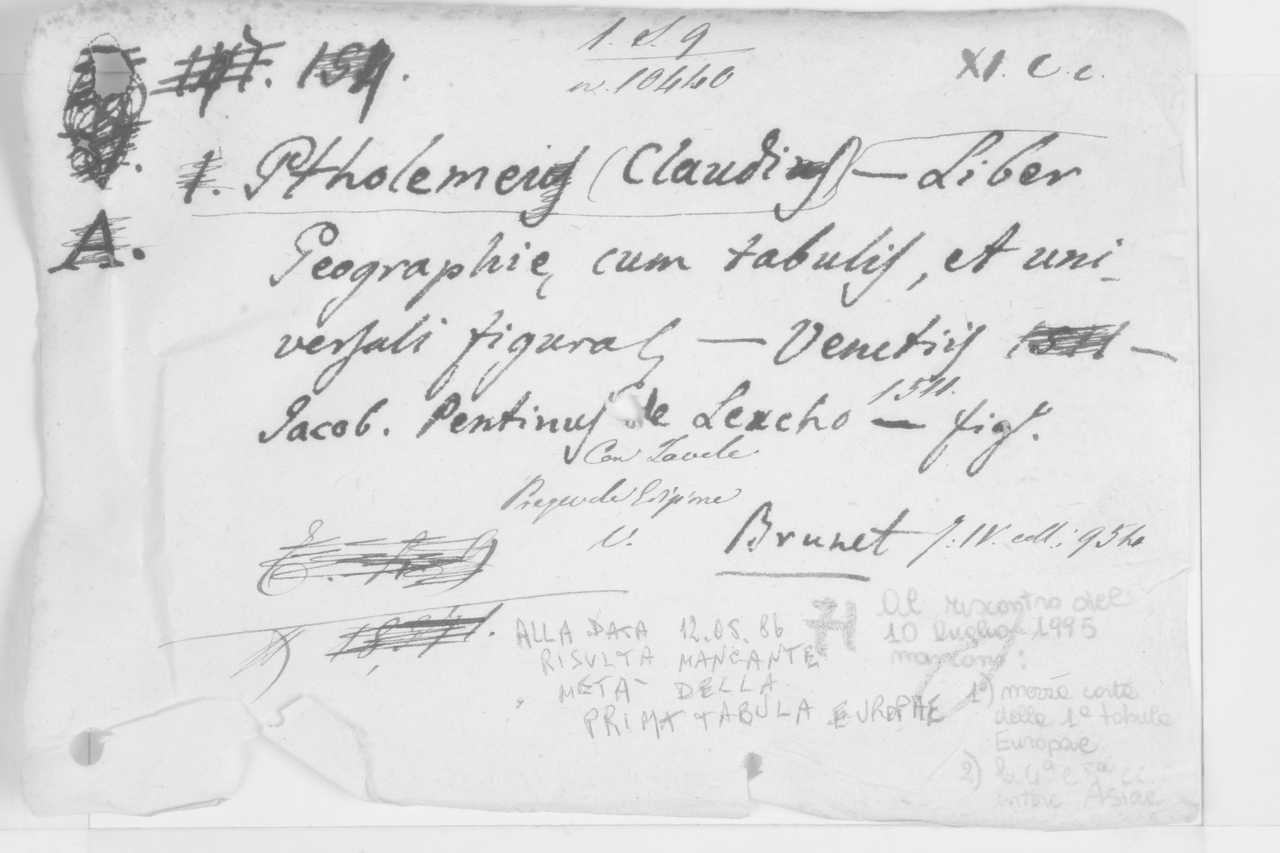 154.
1. S. 9
n. 10440
XI. C. c.
1. Ptholemeus (Claudius) — Liber
A.
Geographię cum tabulis, et uni-
versali figura — Venetiis 1511 —
1511.
Jacob. Pentius de Leucho — figs.
Con Tavole
V. Brunet T. IV. coll. 954
ALLA DATA 12.05.86
RISULTA MANCANTE
METÀ DELLA
PRIMA TABULA EUROPAE
Al riscontro del
10 luglio 1995
mancano:
1°) mezza carta
della 1ª tabula
Europae
2) la 4ª e 5ª
Asiae